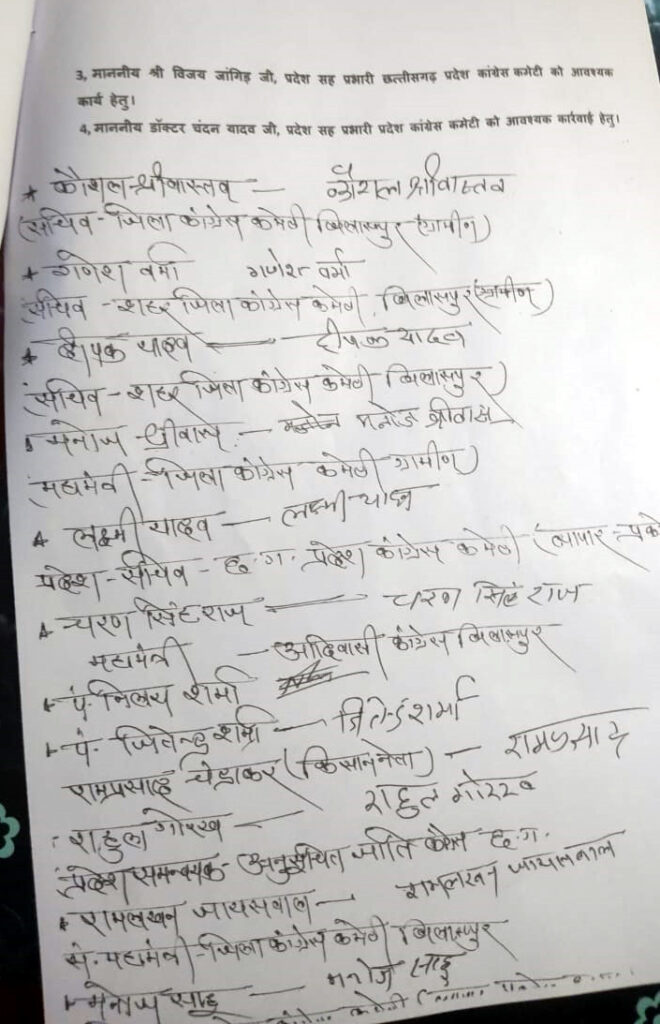 3, माननीय श्री विजय जांगिड़ जी, प्रदेश सह प्रभारी छत्तीसगढ़ प्रदेश कांग्रेस कमेटी को आवश्यक
कार्य हेतु।
4, माननीय डॉक्टर चंदन यादव जी, प्रदेश सह प्रभारी प्रदेश कांग्रेस कमेटी को आवश्यक कार्रवाई हेतु।
* कौशल श्रीवास्तव — कौशल श्रीवास्तव
(सचिव - जिला कांग्रेस कमेटी बिलासपुर (ग्रामीण)
* गणेश वर्मा गणेश वर्मा
सचिव - शहर जिला कांग्रेस कमेटी बिलासपुर (ग्रामीण)
* दीपक यादव — दीपक यादव
(सचिव - शहर जिला कांग्रेस कमेटी बिलासपुर)
मनोज श्रीवास — मनोज श्रीवास
(महामंत्री - जिला कांग्रेस कमेटी ग्रामीण)
* लक्ष्मी यादव — लक्ष्मी यादव
प्रदेश - सचिव - छ. ग. प्रदेश कांग्रेस कमेटी (व्यापार
* चरण सिंह राज — चरण सिंह राज
महामंत्री - आदिवासी कांग्रेस बिलासपुर
* पं. निलय शर्मा
* पं. जितेन्द्र शर्मा — जितेन्द्र शर्मा
रामप्रसाद (किसान नेता) — रामप्रसाद
राहुल गोरख — राहुल गोरख
प्रदेश समन्वयक - अनुसूचित जाति छ. ग.
* रामलखन जायसवाल — रामलखन जायसवाल
जिला कांग्रेस कमेटी बिलासपुर
* मनोज साहू — मनोज साहू